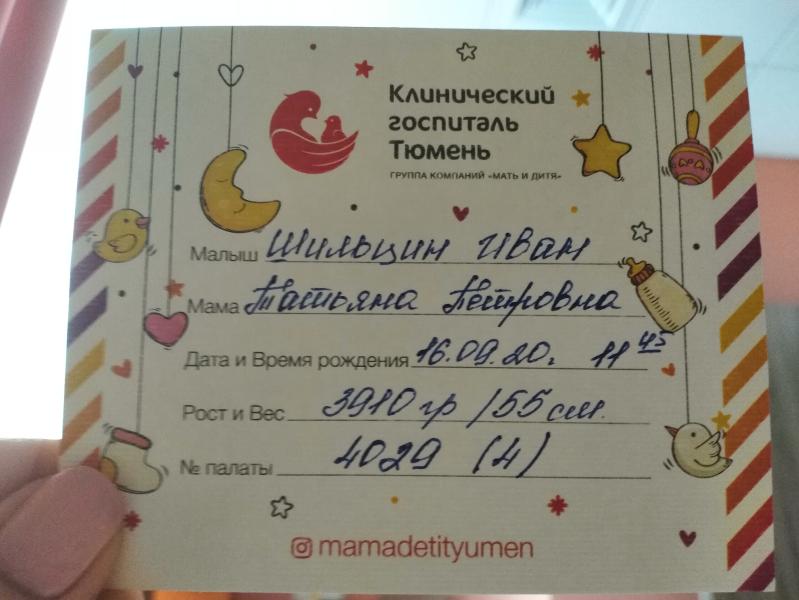 Клинический
госпиталь
Тюмень
ГРУППА КОМПАНИЙ «МАТЬ И ДИТЯ»
Малыш Шильцин Иван
Мама Татьяна Петровна
Дата и Время рождения 16.09.20. 11 45
Рост и Вес 3910 гр / 55 см.
№ палаты 4029 (4)
mamadetityumen